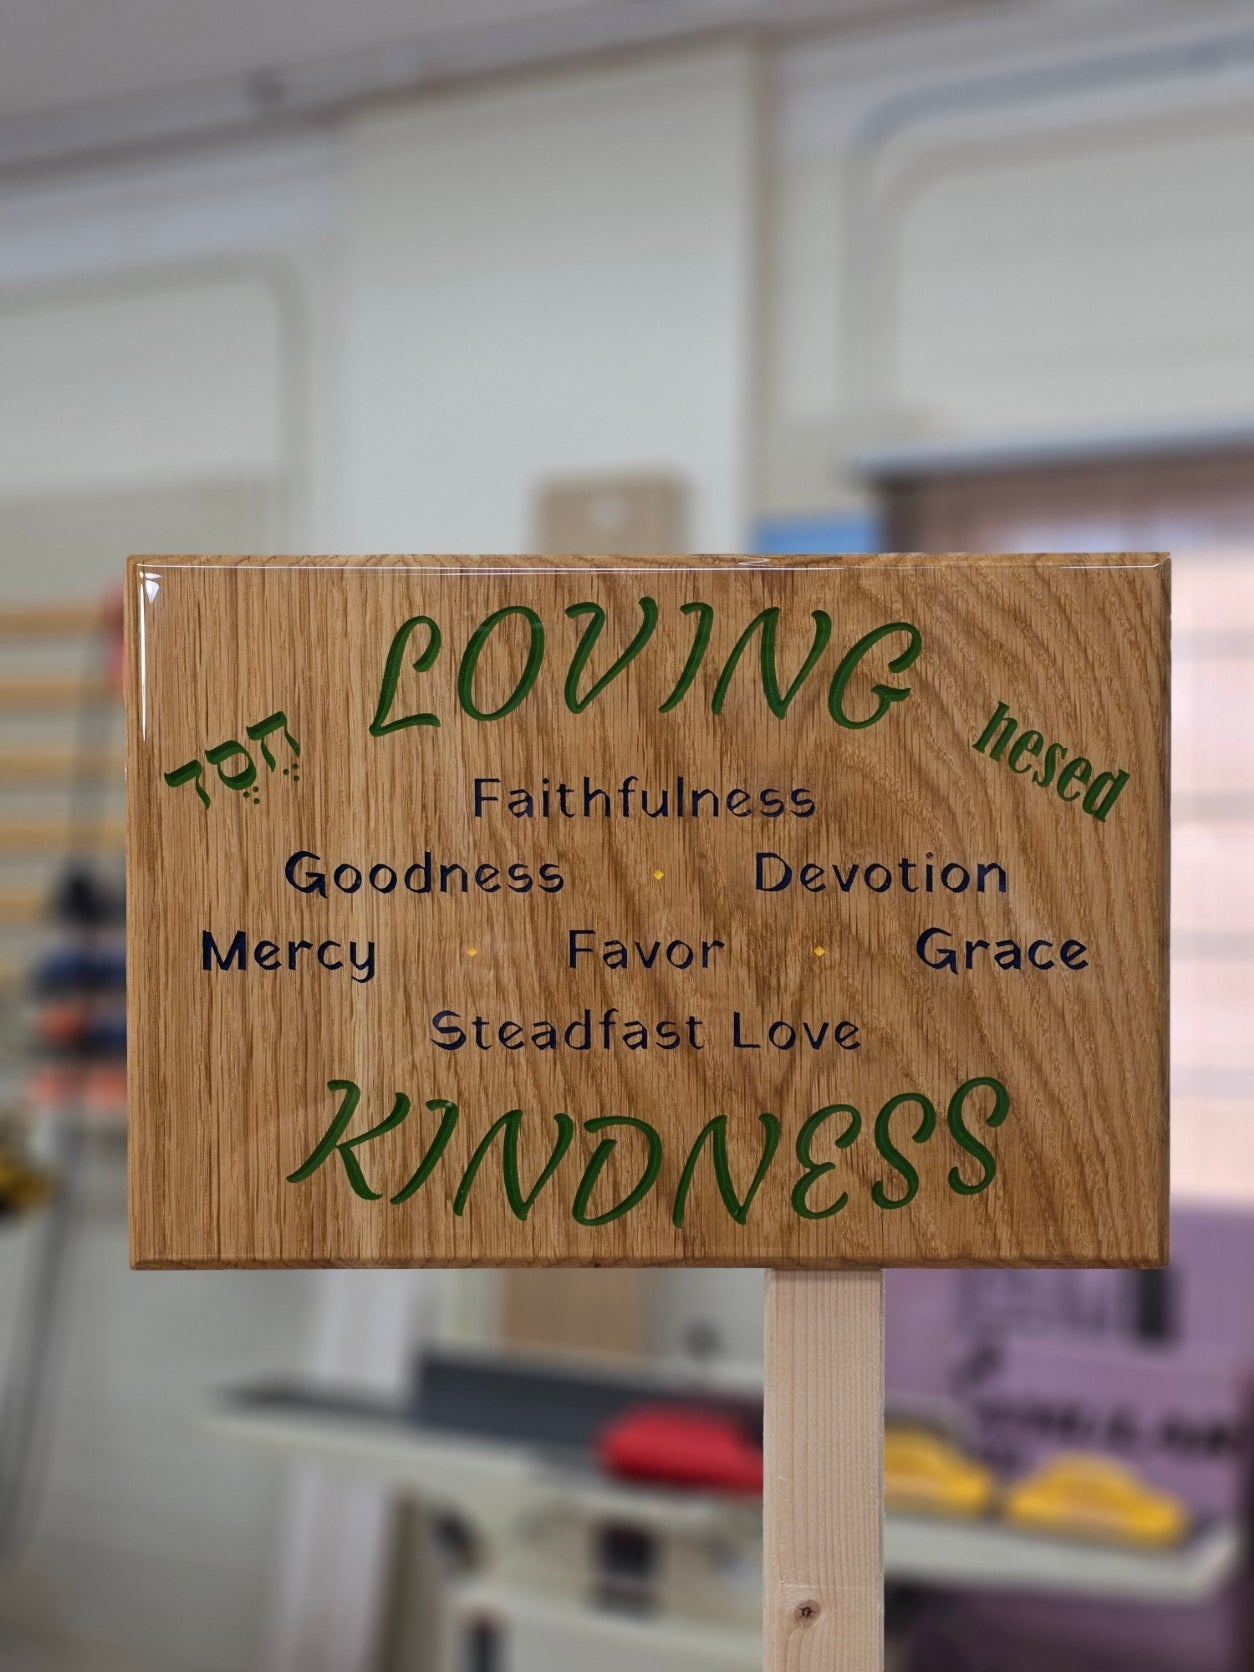 LOVING
חֶסֶד
hesed
Faithfulness
Goodness Devotion
Mercy Favor Grace
Steadfast Love
KINDNESS